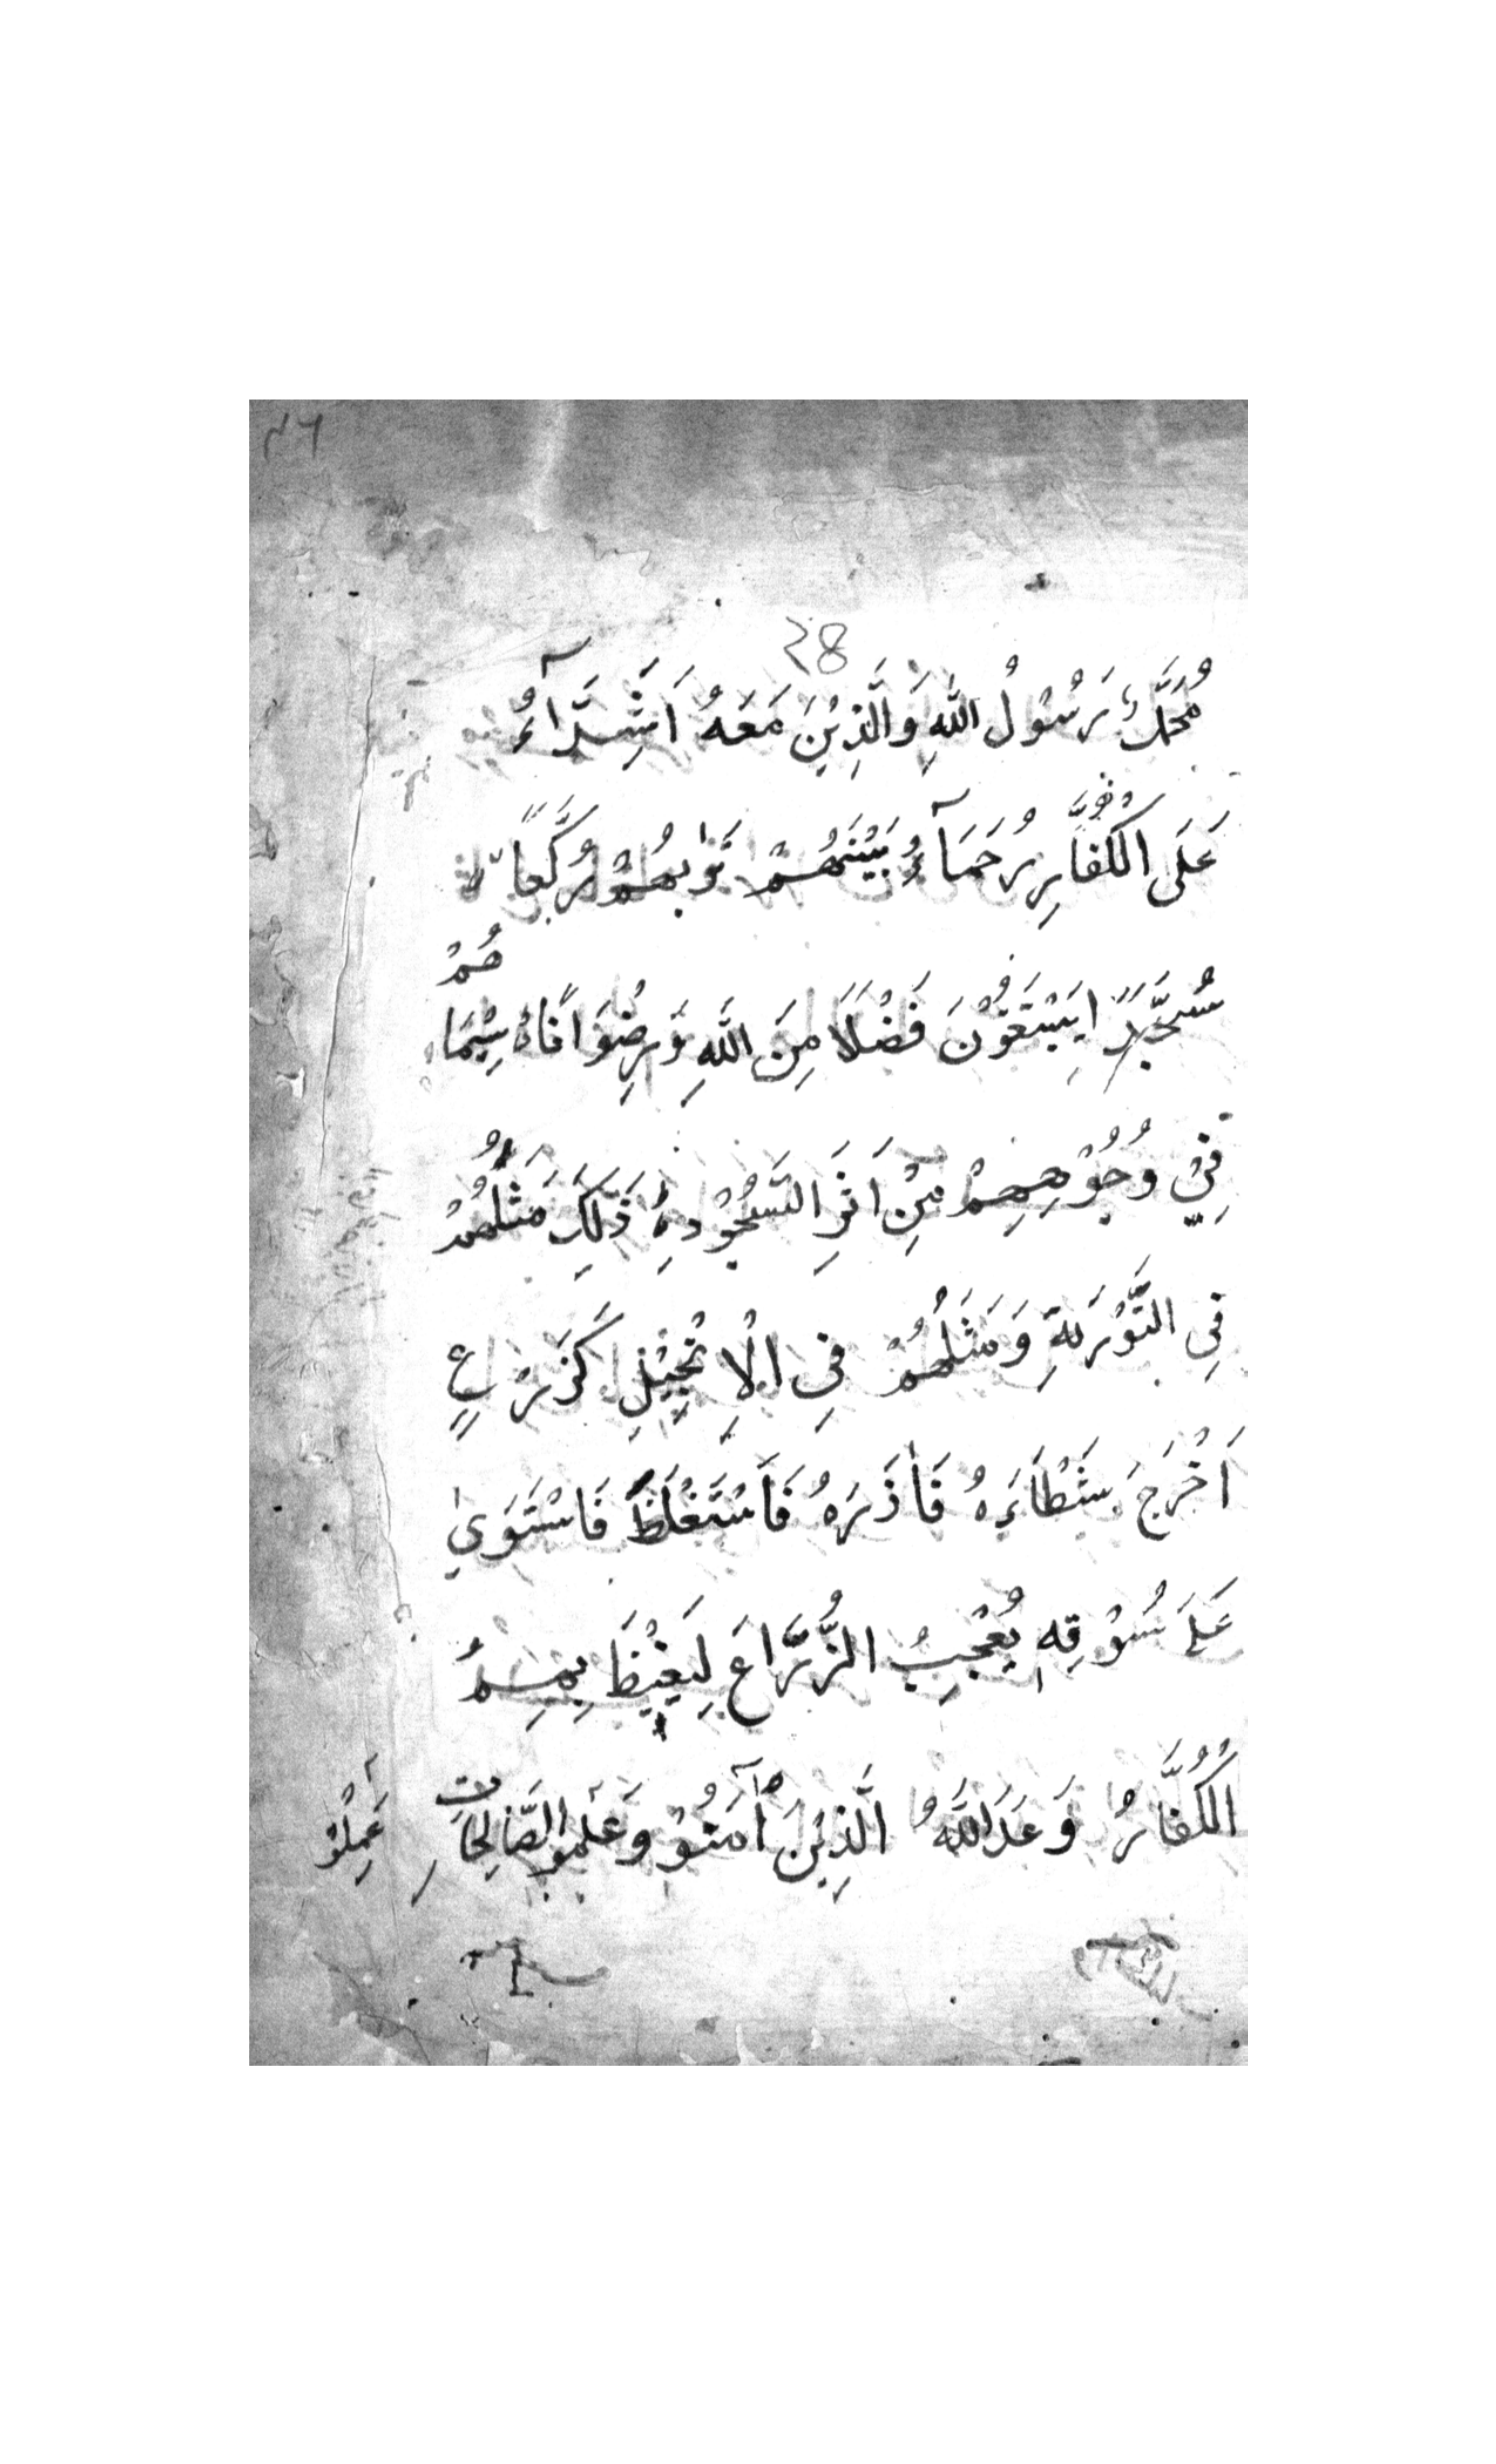 ٤٦
٤٨
مُحَمَّدٌ رَسُوْلُ اللّٰهِ وَالَّذِيْنَ مَعَهُ اَشِدَّآءُ
عَلَى الْكُفَّارِ رُحَمَآءُ بَيْنَهُمْ تَرٰىهُمْ رُكَّعًا
سُجَّدًا يَبْتَغُوْنَ فَضْلًا مِنَ اللّٰهِ وَرِضْوَانًا سِيْمَاهُمْ
فِيْ وُجُوْهِهِمْ مِنْ اَثَرِ السُّجُوْدِ ذٰلِكَ مَثَلُهُمْ
فِي التَّوْرٰىةِ وَمَثَلُهُمْ فِي الْاِنْجِيْلِ كَزَرْعٍ
اَخْرَجَ شَطْأَهُ فَاٰزَرَهُ فَاسْتَغْلَظَ فَاسْتَوٰي
عَلٰى سُوْقِهٖ يُعْجِبُ الزُّرَّاعَ لِيَغِيْظَ بِهِمُ
الْكُفَّارُ وَعَدَ اللّٰهُ الَّذِيْنَ آمَنُوْ وَعَلمو الصَّالِحَاتِ
عَمِلُوْ